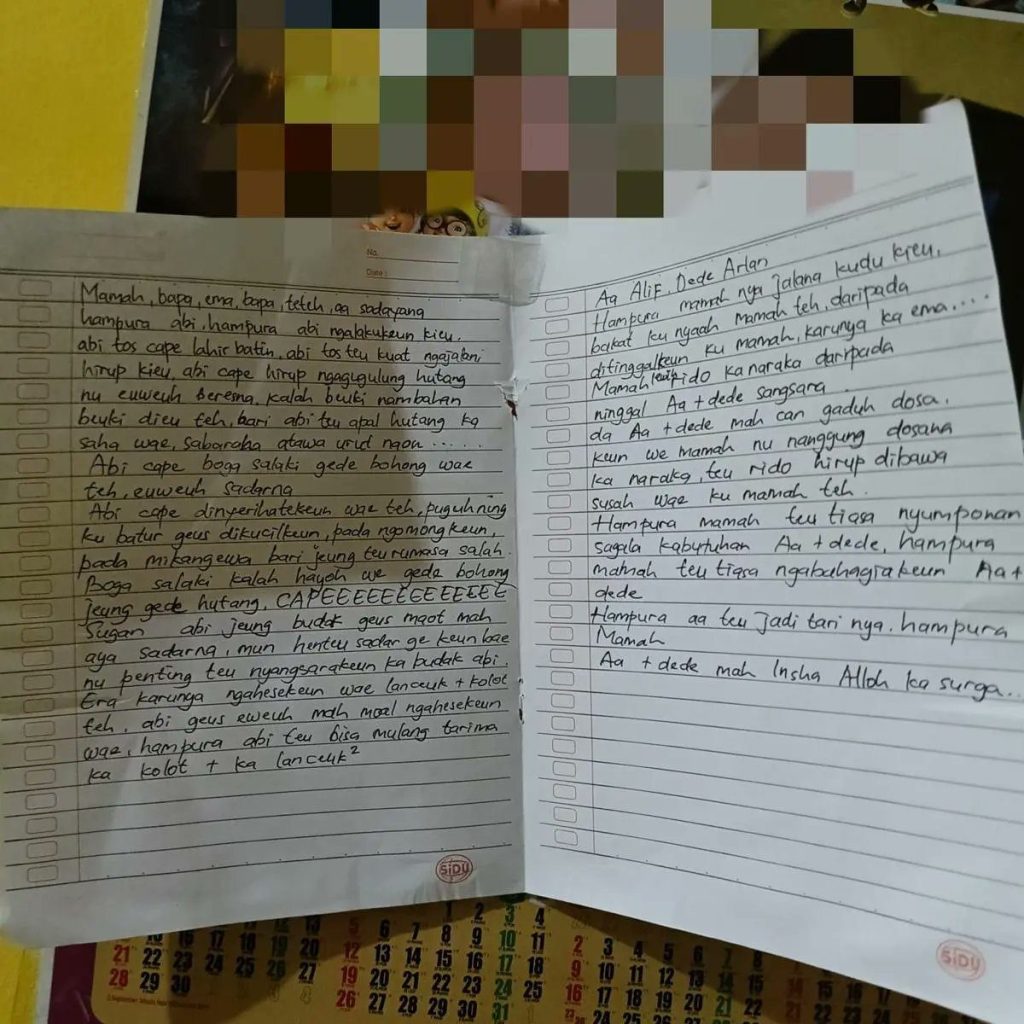 No.
Date :
Mamah, bapa, ema, bapa, teteh, aa sadayana
hampura abi, hampura abi ngalakukeun kieu.
abi tos cape lahir batin, abi tos teu kuat ngajalani
hirup kieu, abi cape hirup ngagugulung hutang
nu euweuh beresna, kalah beuki nambahan
beuki dieu teh, bari abi teu apal hutang ka
saha wae, sabaraha atawa urut naon......
Abi cape boga salaki gede bohong wae
teh, euweuh sadarna
Abi cape dinyerihatekeun wae teh, puguhning
ku batur geus dikucilkeun, pada ngomongkeun,
pada mikangewa bari jeung teu rumasa salah.
Boga salaki kalah hayoh we gede bohong
jeung gede hutang, CAPEEEEEEEEEEEEE
Sugan abi jeung budak geus maot mah
aya sadarna, mun henteu sadar ge keun bae
nu penting teu nyangsarakeun ka budak abi.
Era karunya ngahesekeun wae lanceuk + kolot
teh, abi geus eweuh mah moal ngahesekeun
wae, hampura abi teu bisa mulang tarima
ka kolot + ka lanceuk²
SIDU
Aa Alif, Dede Arlan
Hampura mamah nya jalana kudu kieu,
bakat ku nyaah mamah teh, daripada
ditinggalkeun ku mamah, karunya ka ema....
Mamah leuih rido ka naraka daripada
ninggal Aa + dede sangsara.
da Aa + dede mah can gaduh dosa.
keun we mamah nu nanggung dosana
ka naraka, teu rido hirup dibawa
susah wae ku mamah teh.
Hampura mamah teu tiasa nyumponan
sagala kabutuhan Aa + dede, hampura
mamah teu tiasa ngabahagiakeun Aa +
dede
Hampura aa teu jadi tari nya. hampura
Mamah
Aa + dede mah Insha Alloh ka surga...
SIDU
1 2 3 4
13 5 6 7 8 9 10 11 2 3 4 5 6 7 8
21 22 23 24 25 26 27 12 13 14 15 16 17 18 9 10 11 12 13
28 29 30 19 20 21 22 23 24 25 16 17 18 19 20
26 27 28 29 30 31 24 25 26 27 28 29